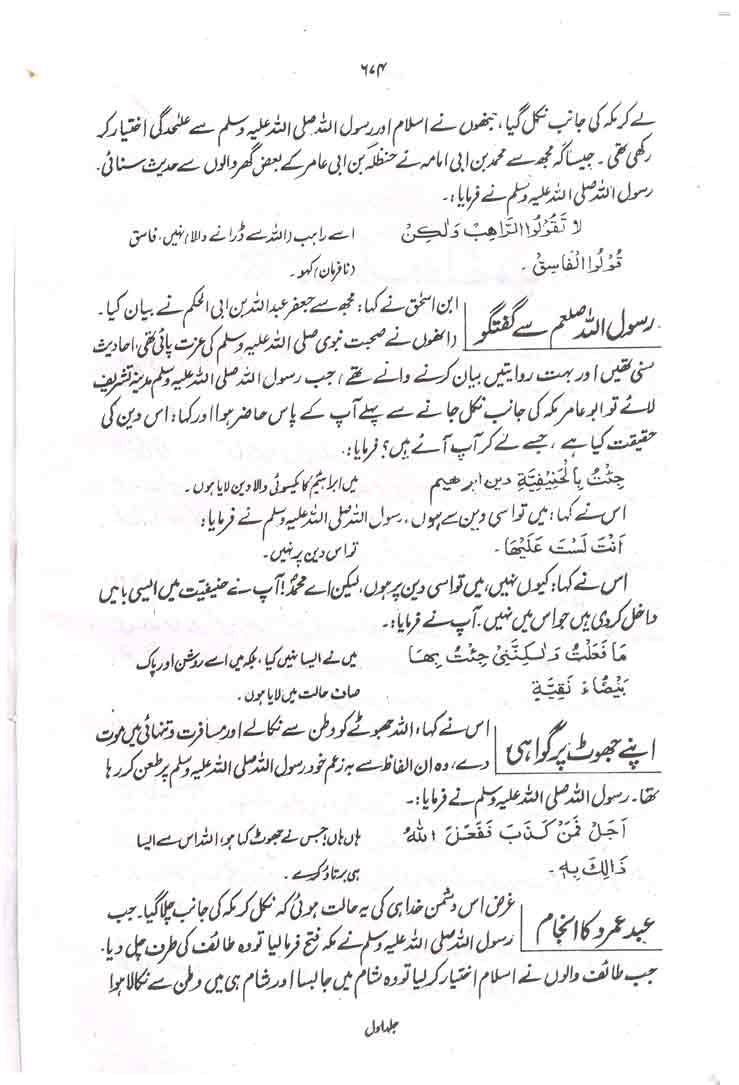 ۶۷۴
لے کر مکہ کی جانب نکل گیا، جنھوں نے اسلام اور رسول اللہ صلی اللہ علیہ وسلم سے علٰحدگی اختیار کر
رکھی تھی۔ جیسا کہ مجھ سے محمد بن ابی امامہ نے حنظلہ بن ابی عامر کے بعض گھر والوں سے حدیث سنائی۔
رسول اللہ صلی اللہ علیہ وسلم نے فرمایا:۔
لَا تَقُوْلُوا الرَّاهِبَ وَلٰكِنْ اسے راہب (اللہ سے ڈرانے والا) نہیں، فاسق
قُوْلُوا الْفَاسِقَ۔ (نافرمان) کہو۔
رسول اللہ صلعم سے گفتگو
ابن اسحٰق نے کہا: مجھ سے جعفر عبداللہ بن ابی الحکم نے بیان کیا۔
(انھوں نے صحبت نبوی صلی اللہ علیہ وسلم کی عزت پائی تھی، احادیث
سنی تھیں اور بہت روایتیں بیان کرنے والے تھے) جب رسول اللہ صلی اللہ علیہ وسلم مدینہ تشریف
لائے تو ابو عامر مکہ کی جانب نکل جانے سے پہلے آپ کے پاس حاضر ہوا اور کہا: اس دین کی
حقیقت کیا ہے، جسے لے کر آپ آئے ہیں؟ فرمایا:
جِئْتُ بِالْحَنِيْفِيَّةِ دين ابرهيم میں ابراہیمؑ کا یکسوئی والا دین لایا ہوں۔
اس نے کہا: میں تو اسی دین سے ہوں، رسول اللہ صلی اللہ علیہ وسلم نے فرمایا:
اَنْتَ لَسْتَ عَلَيْهَا۔ تو اس دین پر نہیں۔
اس نے کہا: کیوں نہیں، میں تو اسی دین پر ہوں، لیکن اے محمدؐ! آپ نے حنیفیّت میں ایسی باتیں
داخل کر دی ہیں جو اس میں نہیں۔ آپ نے فرمایا:۔
مَا فَعَلْتُ وَلٰكِنَّنِيْ جِئْتُ بِهَا میں نے ایسا نہیں کیا، بلکہ میں اسے روشن اور پاک
بَيْضَاءَ نَقِيَّةٍ صاف حالت میں لایا ہوں۔
اپنے جھوٹ پر گواہی
اس نے کہا، اللہ جھوٹے کو وطن سے نکالے اور مسافرت و تنہائی میں موت
دے، وہ ان الفاظ سے بہ زعم خود رسول اللہ صلی اللہ علیہ وسلم پر طعن کر رہا
تھا۔ رسول اللہ صلی اللہ علیہ وسلم نے فرمایا:۔
اَجَلْ فَمَنْ كَذَبَ فَفَعَلَ اللهُ ہاں ہاں! جس نے جھوٹ کہا ہو، اللہ اس سے ایسا
ذَالِكَ بِهٖ۔ ہی برتاؤ کرے۔
عبد عمرو کا انجام
غرض اس دشمن خدا ہی کی یہ حالت ہوئی کہ نکل کر مکہ کی جانب چلا گیا۔ جب
رسول اللہ صلی اللہ علیہ وسلم نے مکہ فتح فرما لیا تو وہ طائف کی طرف چل دیا۔
جب طائف والوں نے اسلام اختیار کر لیا تو وہ شام میں جا بسا اور شام ہی میں وطن سے نکالا ہوا
جلد اول